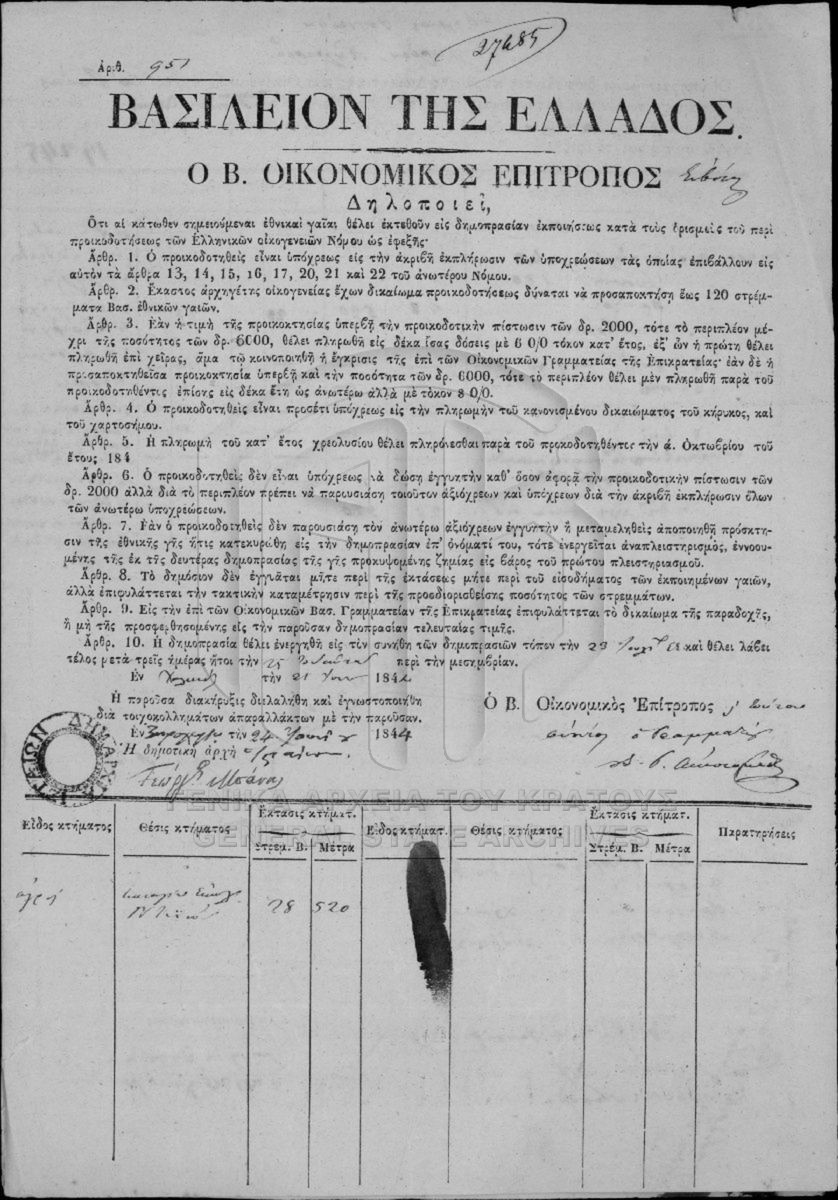 27485
Ἀριθ. 951
ΒΑΣΙΛΕΙΟΝ ΤΗΣ ΕΛΛΑΔΟΣ.
Ο Β. ΟΙΚΟΝΟΜΙΚΟΣ ΕΠΙΤΡΟΠΟΣ
Δηλοποιεῖ,
Ὅτι αἱ κάτωθεν σημειούμεναι ἐθνικαὶ γαῖαι θέλει ἐκτεθοῦν εἰς δημοπρασίαν ἐκποιήσεως κατὰ τοὺς ὁρισμοὺς τοῦ περὶ
προικοδοτήσεως τῶν Ἑλληνικῶν οἰκογενειῶν Νόμου ὡς ἐφεξῆς·
Ἄρθρ. 1. Ὁ προικοδοτηθεὶς εἶναι ὑπόχρεως εἰς τὴν ἀκριβῆ ἐκπλήρωσιν τῶν ὑποχρεώσεων τὰς ὁποίας ἐπιβάλλουν εἰς
αὐτὸν τὰ ἄρθρα 13, 14, 15, 16, 17, 20, 21 καὶ 22 τοῦ ἀνωτέρου Νόμου.
Ἄρθρ. 2. Ἕκαστος ἀρχηγέτης οἰκογενείας ἔχων δικαίωμα προικοδοτήσεως δύναται νὰ προσαποκτήσῃ ἕως 120 στρέμ-
ματα Βασ. ἐθνικῶν γαιῶν.
Ἄρθρ. 3. Ἐὰν ἡ τιμὴ τῆς προικοκτησίας ὑπερβῇ τὴν προικοδοτικὴν πίστωσιν τῶν δρ. 2000, τότε τὸ περιπλέον μέ-
χρι τῆς ποσότητος τῶν δρ. 6000, θέλει πληρωθῆ εἰς δέκα ἴσας δόσεις μὲ 6 0/0 τόκον κατ' ἔτος, ἐξ' ὧν ἡ πρώτη θέλει
πληρωθῆ ἐπὶ χεῖρας, ἅμα τῷ κοινοποιηθῇ ἡ ἔγκρισις τῆς ἐπὶ τῶν Οἰκονομικῶν Γραμματείας τῆς Ἐπικρατείας· ἐὰν δὲ ἡ
προσαποκτηθεῖσα προικοκτησία ὑπερβῇ καὶ τὴν ποσότητα τῶν δρ. 6000, τότε τὸ περιπλέον θέλει μὲν πληρωθῆ παρὰ τοῦ
προικοδοτηθέντος ἐπίσης εἰς δέκα ἔτη ὡς ἀνωτέρω ἀλλὰ μὲ τόκον 8 0/0.
Ἄρθρ. 4. Ὁ προικοδοτηθεὶς εἶναι προσέτι ὑπόχρεως εἰς τὴν πληρωμὴν τοῦ κανονισμένου δικαιώματος τοῦ κήρυκος, καὶ
τοῦ χαρτοσήμου.
Ἄρθρ. 5. Ἡ πληρωμὴ τοῦ κατ' ἔτος χρεολυσίου θέλει πληρόνεσθαι παρὰ τοῦ προικοδοτηθέντος τὴν ά. Ὀκτωβρίου τοῦ
ἔτους 184
Ἄρθρ. 6. Ὁ προικοδοτηθεὶς δὲν εἶναι ὑπόχρεως νὰ δώσῃ ἐγγυητὴν καθ' ὅσον ἀφορᾷ τὴν προικοδοτικὴν πίστωσιν τῶν
δρ. 2000 ἀλλὰ διὰ τὸ περιπλέον πρέπει νὰ παρουσιάσῃ τοιοῦτον ἀξιόχρεων καὶ ὑπόχρεων διὰ τὴν ἀκριβῆ ἐκπλήρωσιν ὅλων
τῶν ἀνωτέρω ὑποχρεώσεων.
Ἄρθρ. 7. Ἐὰν ὁ προικοδοτηθεὶς δὲν παρουσιάσῃ τὸν ἀνωτέρω ἀξιόχρεων ἐγγυητὴν ἢ μεταμεληθεὶς ἀποποιηθῇ πρόσκτη-
σιν τῆς ἐθνικῆς γῆς ἥτις κατεκυρώθη εἰς τὴν δημοπρασίαν ἐπ' ὀνόματί του, τότε ἐνεργεῖται ἀναπλειστηριασμός, ἐννοου-
μένης τῆς ἐκ τῆς δευτέρας δημοπρασίας τῆς γῆς προκυψομένης ζημίας εἰς βάρος τοῦ πρώτου πλειστηριασμοῦ.
Ἄρθρ. 8. Τὸ δημόσιον δὲν ἐγγυᾶται μήτε περὶ τῆς ἐκτάσεως μήτε περὶ τοῦ εἰσοδήματος τῶν ἐκποιημένων γαιῶν,
ἀλλὰ ἐπιφυλάττεται τὴν τακτικὴν καταμέτρησιν περὶ τῆς προεδιορισθείσης ποσότητος τῶν στρεμμάτων.
Ἄρθρ. 9. Εἰς τὴν ἐπὶ τῶν Οἰκονομικῶν Βασ. Γραμματείαν τῆς Ἐπικρατείας ἐπιφυλάττεται τὸ δικαίωμα τῆς παραδοχῆς,
ἢ μὴ τῆς προσφερθησομένης εἰς τὴν παροῦσαν δημοπρασίαν τελευταίας τιμῆς.
Ἄρθρ. 10. Ἡ δημοπρασία θέλει ἐνεργηθῆ εἰς τὸν συνήθη τῶν δημοπρασιῶν τόπον τὴν 23 καὶ θέλει λάβει
τέλος μετὰ τρεῖς ἡμέρας ἤτοι τὴν 25 περὶ τὴν μεσημβρίαν.
Ἐν τὴν 21 1844
Ἡ παροῦσα διακήρυξις διελαλήθη καὶ ἐγνωστοποιήθη
διὰ τοιχοκολλημάτων ἀπαραλλάκτων μὲ τὴν παροῦσαν.
Ὁ Β. Οἰκονομικὸς Ἐπίτροπος
Ἐν τὴν 24 1844
ὁ Γραμματεὺς
Ἡ δημοτικὴ ἀρχὴ
ΓΕΝΙΚΑ ΑΡΧΕΙΑ ΤΟΥ ΚΡΑΤΟΥΣ
GENERAL STATE ARCHIVES
Εἶδος κτήματος Θέσις κτήματος Ἔκτασις κτήματ. Εἶδος κτήματ. Θέσις κτήματος Ἔκτασις κτήματ. Παρατηρήσεις
Στρέμ. Β. Μέτρα Στρέμ. Β. Μέτρα
28 520